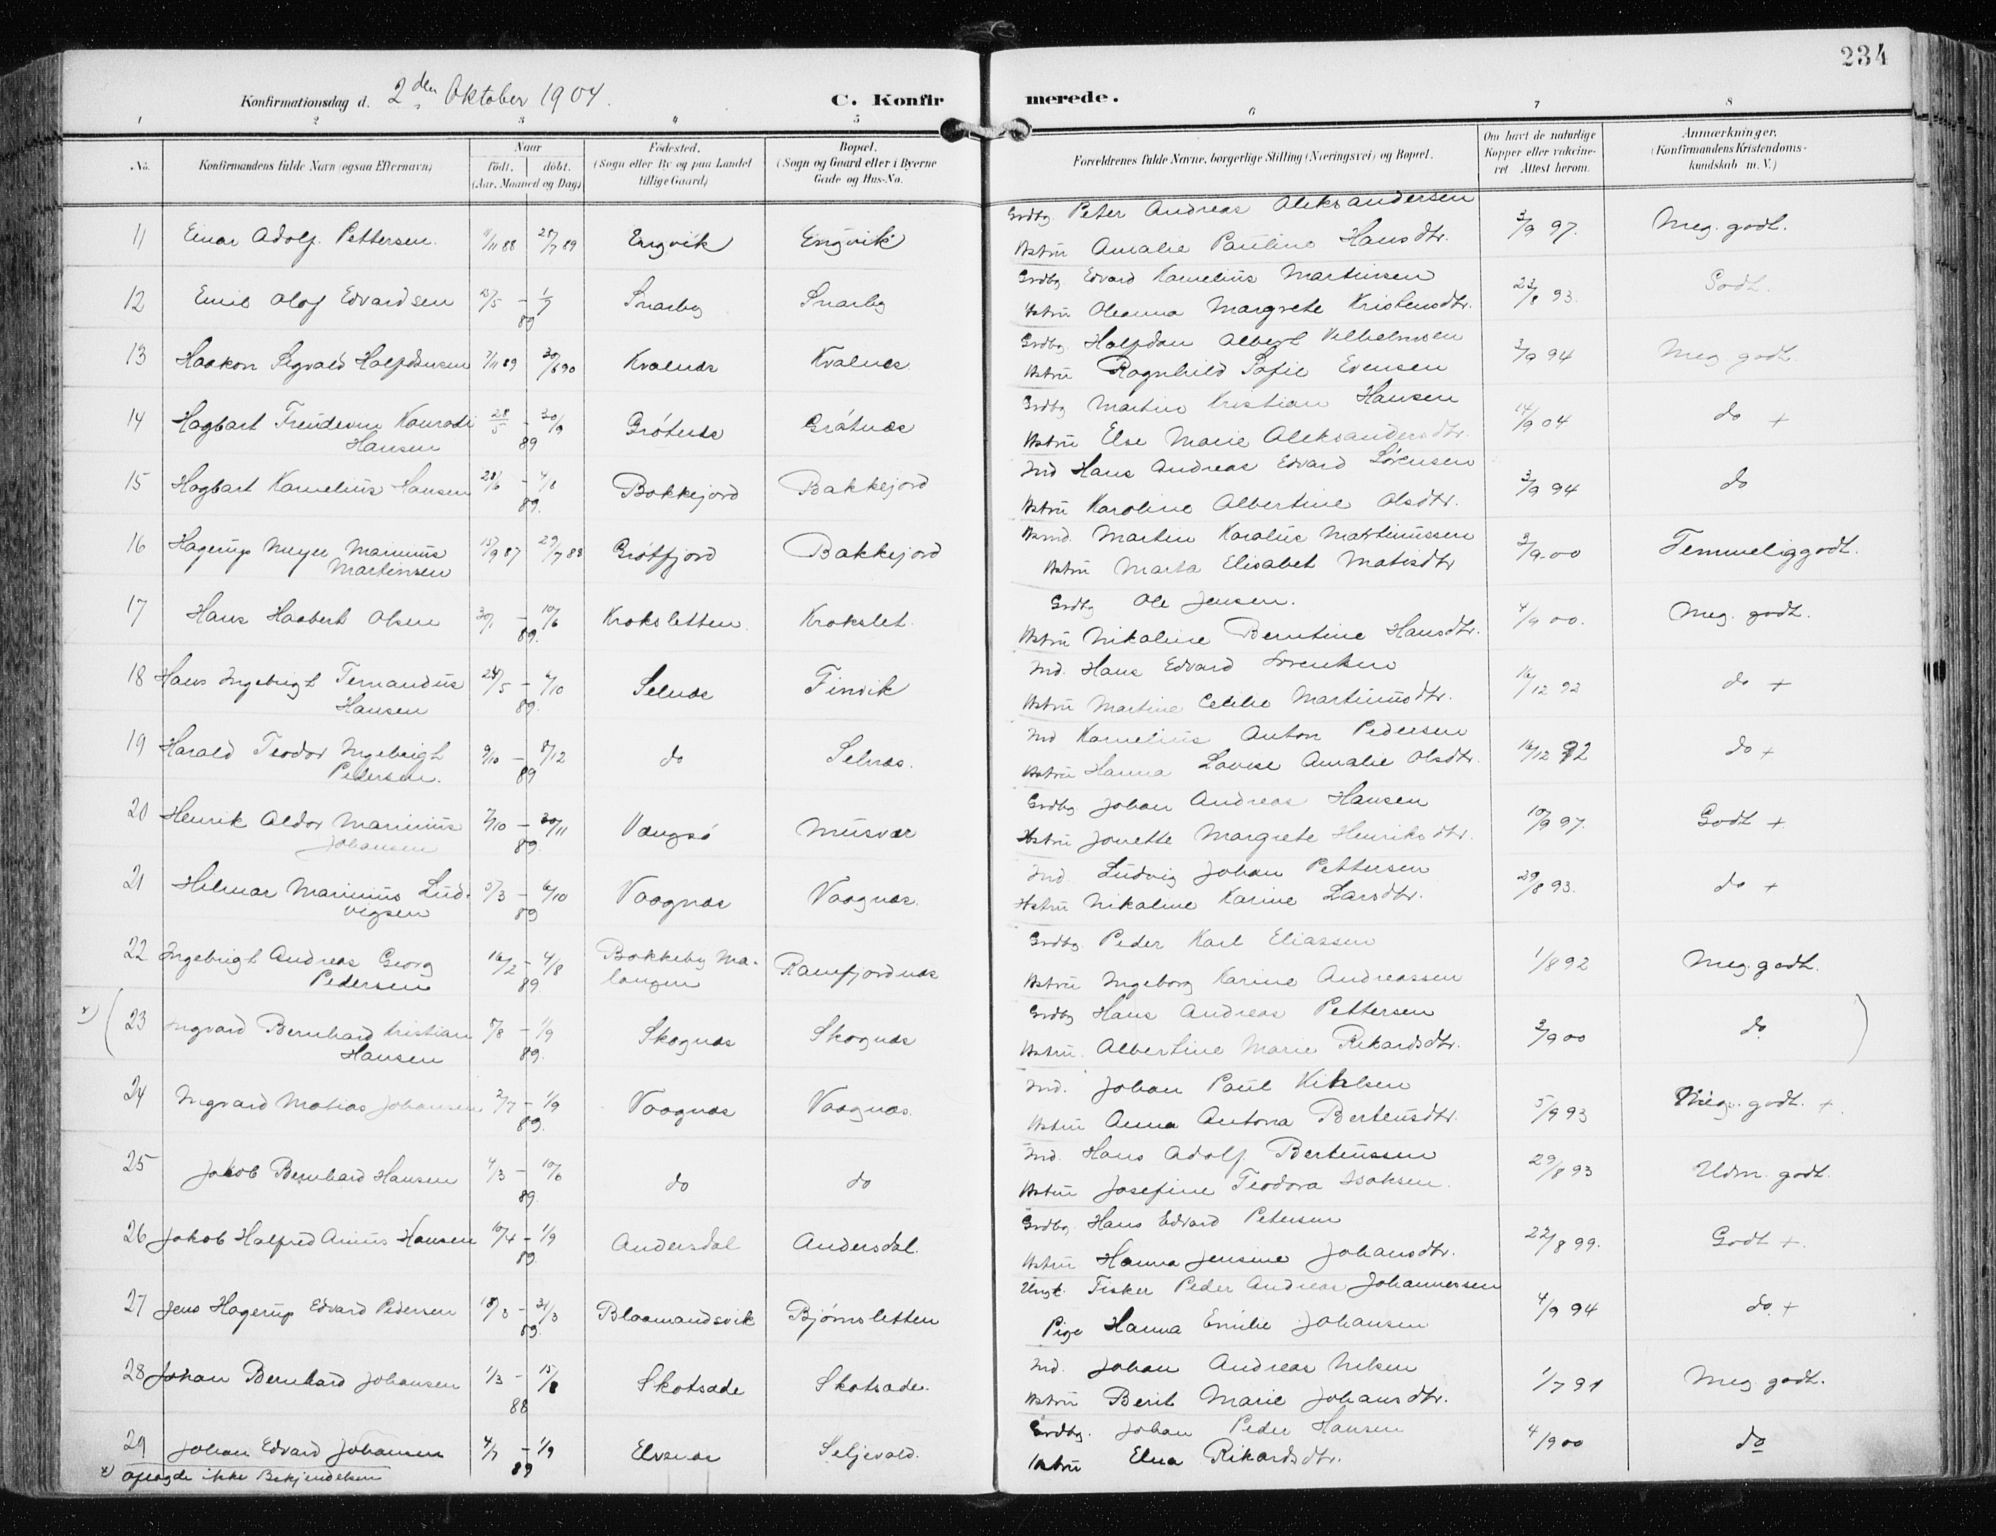 234
Konfirmationsdag d. 2den Oktober 1904. C. Konfirmerede.
1 2 3 4 5 6 7 8
No. Konfirmandens fulde Navn (ogsaa Efternavn) Naar født. døbt. (Aar, Maaned og Dag) Fødested. (Sogn eller By og paa Landet tillige Gaard) Bopæl. (Sogn og Gaard eller i Byerne Gade og Hus-No. Forældrenes fulde Navne, borgerlige Stilling (Næringsvei) og Bopæl. Om havt de naturlige Kopper eller vakcineret Attest herom. Anmærkninger. (Konfirmandens Kristendomskundskab m. V.)
11 Einar Adolf Pettersen. 9/11 88 28/7 89 Engvik Engvik Grdbg Peter Andreas Aleksandersen 3/9 97. Meg. godt.
Hstru Amalie Pauline Hansdtr.
12 Emil Olaf Edvardsen 13/5 – 1/9 89 Snarby Snarby Grdbg Edvard Kornelius Martinsen 23/8 93. Godt.
Hstru Oleanna Margrete Kristensdtr.
13 Haakon Sigvald Halfdansen 7/11 89 30/6 90 Kvalnæs Kvalnæs Grdbg. Halfdan Albert Vilhelmsen 3/9 94 Meg. godt.
Hstru Ragnhild Sofie Evensen
14 Hagbart Konradi 28/5 – 30/9 Grötnæs Grötnæs Grdbg Martin Kristian Hansen 14/9 04 do +
Hansen 89 Hstru Else Marie Aleksandersdtr.
15 Hagbart Kornelius Hansen 28/6 – 4/8 89. Bakkejord Bakkejord Ind Hans Andreas Edvard Sørensen 3/9 94 do
Hstru Karoline Albertine Olsdtr.
16 Hagerup Meyer Marinius 15/9 87 29/7 88 Grötfjord Bakkejord Martin Karolius Martinussen 3/9 00 Temmelig godt.
Martinsen Hstru Marta Elisabet Matisdtr
17 Hans Haabert Olsen 30/1 – 10/6 89. Kroksletten. Krokslet. Grdbg Ole Jensen. 4/9 00. Meg. godt.
Hstru Nikoline Berntine Hansdtr.
18 Hans Ingebrigt Fernandus 24/5 – 6/10 Selnæs Finvik Ind. Hans Edvard Sørensen 16/12 92 do +
Hansen 89. Hstru Martine Celelie Martinusdtr.
19 Harald Teodor Ingebrigt 9/10 – 8/12 do Selnæs. Ind Kornelius Anton Pedersen 16/12 92 do +
Pedersen. 89 Hstru Hanna Lovise Amalie Olsdtr.
20 Henrik Aldor Marinius 7/10 – 30/11 Vengsö Musvær Grdbg Johan Andreas Hansen 10/9 97. Godt +
Johansen 89. Hstru Jonette Margrete Henriksdtr.
21 Hilmar Marinius Lud- 5/3 – 6/10 Vaagnæs Vaagnæs. Ind. Ludvig Johan Pettersen 29/8 93. do +
vigsen 89 Hstru Nikoline Karine Larsdtr.
22 Ingebrigt Andreas Georg 16/2 – 4/8 Bakkeby Ma- Ramfjordnæs Grdbg. Peder Karl Eliassen 1/8 92 Meg. godt.
Pedersen 89 langen Hstru Ingeborg Karine Andreassen
x) ( 23 Ingvard Bernhard Kristian 5/8 – 1/9 Skognæs Skognæs Grdbg Hans Andreas Pettersen 3/9 00 do. )
Hansen 89. Hstru. Albertine Marie Rikardsdtr.
24 Ingvard Matias Johansen 2/7 – 1/9 89. Vaagnæs Vaagnæs. Ind. Johan Paul 5/9 93 Meg. godt. +
Hstru Anna Antona Bertensdtr.
25 Jakob Bernhard Hansen 4/3 – 10/6 89. do do Ind. Hans Adolf Bertenssen 29/8 93 Udm. godt.
Hstru Josefine Teodora Isaksen.
26 Jakob Halfred Arius Hansen 10/4 – 1/9 89. Andersdal Andersdal. Grdbg. Hans Edvard Petersen 22/8 99. Godt +.
Hstru Hanna Jensine Johansdtr.
27 Jens Hagerup Edvard Pedersen 18/3 – 31/3 89. Blaamandsvik Bjørnsletten Ungk. Fisker Peder Andreas Johannessen 4/9 94 do +
Pige Hanna Emilie Johansen
28 Johan Bernhard Johansen 1/3 – 15/8 88 Skotsæde Skotsæde. Ind. Johan Andreas Nilsen 1/7 91 Meg godt.
Hstru Berit Marie Johansdtr.
29 Johan Edvard Johansen 4/7 – 1/9 89 Elvenæs Seljevold. Grdbg. Johan Peder Hansen 4/9 00 do
Hstru Elna Rikardsdtr.
x) aflagde ikke Bekjendelsen